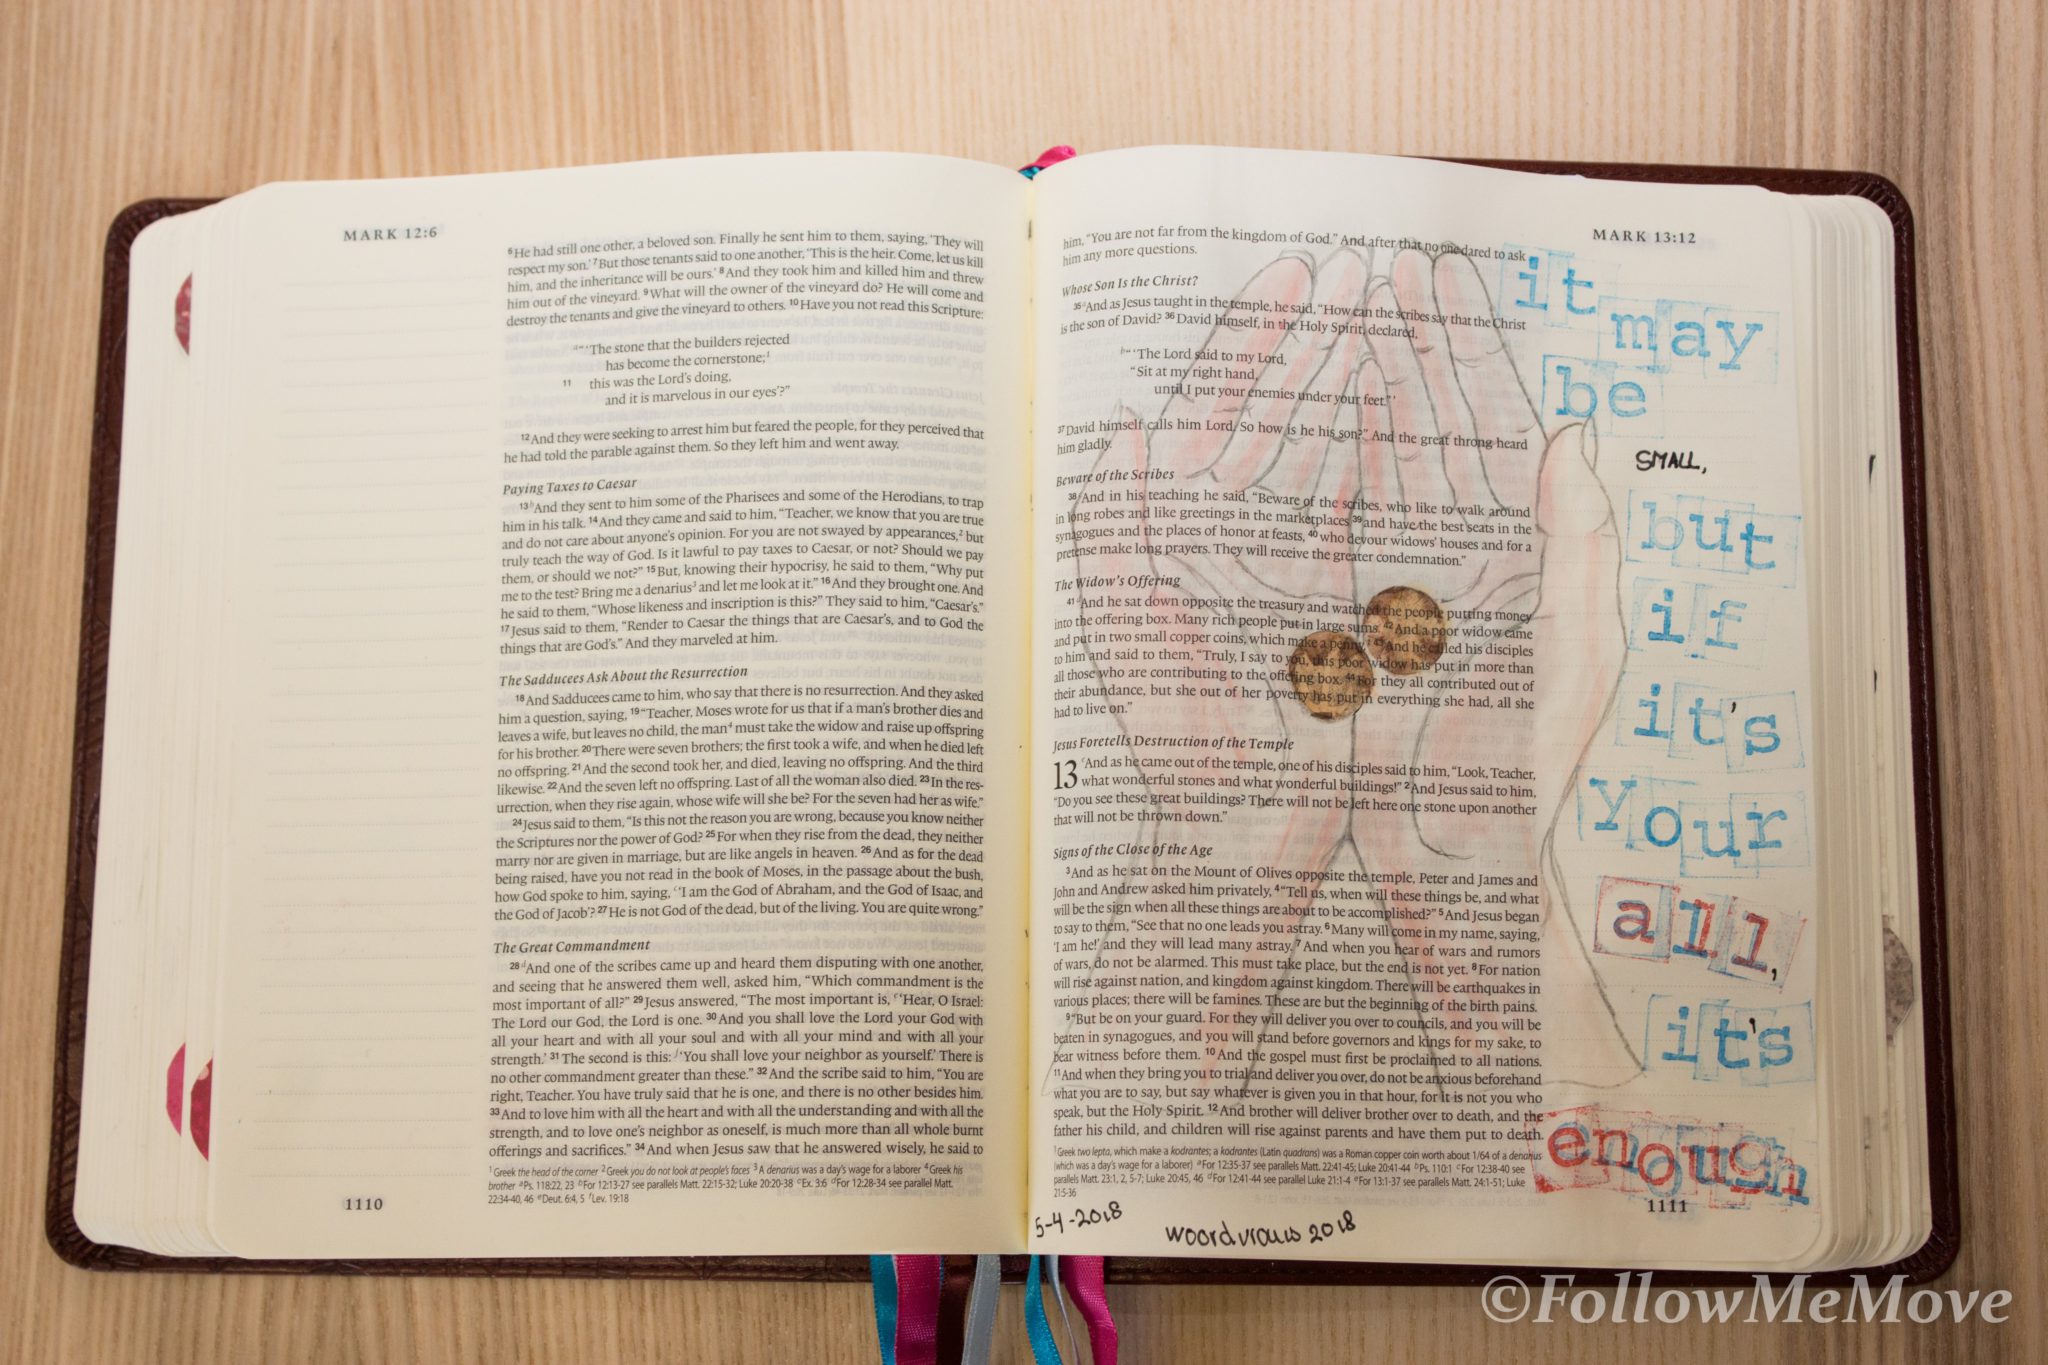 MARK 12:6
⁶He had still one other, a beloved son. Finally he sent him to them, saying, ‘They will
respect my son.’ ⁷But those tenants said to one another, ‘This is the heir. Come, let us kill
him, and the inheritance will be ours.’ ⁸And they took him and killed him and threw
him out of the vineyard. ⁹What will the owner of the vineyard do? He will come and
destroy the tenants and give the vineyard to others. ¹⁰Have you not read this Scripture:
ᵃ“‘The stone that the builders rejected
has become the cornerstone;¹
¹¹ this was the Lord’s doing,
and it is marvelous in our eyes’?”
¹²And they were seeking to arrest him but feared the people, for they perceived that
he had told the parable against them. So they left him and went away.
Paying Taxes to Caesar
¹³ᵇAnd they sent to him some of the Pharisees and some of the Herodians, to trap
him in his talk. ¹⁴And they came and said to him, “Teacher, we know that you are true
and do not care about anyone’s opinion. For you are not swayed by appearances,² but
truly teach the way of God. Is it lawful to pay taxes to Caesar, or not? Should we pay
them, or should we not?” ¹⁵But, knowing their hypocrisy, he said to them, “Why put
me to the test? Bring me a denarius³ and let me look at it.” ¹⁶And they brought one. And
he said to them, “Whose likeness and inscription is this?” They said to him, “Caesar’s.”
¹⁷Jesus said to them, “Render to Caesar the things that are Caesar’s, and to God the
things that are God’s.” And they marveled at him.
The Sadducees Ask About the Resurrection
¹⁸And Sadducees came to him, who say that there is no resurrection. And they asked
him a question, saying, ¹⁹“Teacher, Moses wrote for us that if a man’s brother dies and
leaves a wife, but leaves no child, the man⁴ must take the widow and raise up offspring
for his brother. ²⁰There were seven brothers; the first took a wife, and when he died left
no offspring. ²¹And the second took her, and died, leaving no offspring. And the third
likewise. ²²And the seven left no offspring. Last of all the woman also died. ²³In the res-
urrection, when they rise again, whose wife will she be? For the seven had her as wife.”
²⁴Jesus said to them, “Is this not the reason you are wrong, because you know neither
the Scriptures nor the power of God? ²⁵For when they rise from the dead, they neither
marry nor are given in marriage, but are like angels in heaven. ²⁶And as for the dead
being raised, have you not read in the book of Moses, in the passage about the bush,
how God spoke to him, saying, ᶜ‘I am the God of Abraham, and the God of Isaac, and
the God of Jacob’? ²⁷He is not God of the dead, but of the living. You are quite wrong.”
The Great Commandment
²⁸ᵈAnd one of the scribes came up and heard them disputing with one another,
and seeing that he answered them well, asked him, “Which commandment is the
most important of all?” ²⁹Jesus answered, “The most important is, ᵉ‘Hear, O Israel:
The Lord our God, the Lord is one. ³⁰And you shall love the Lord your God with
all your heart and with all your soul and with all your mind and with all your
strength.’ ³¹The second is this: ᶠ‘You shall love your neighbor as yourself.’ There is
no other commandment greater than these.” ³²And the scribe said to him, “You are
right, Teacher. You have truly said that he is one, and there is no other besides him.
³³And to love him with all the heart and with all the understanding and with all the
strength, and to love one’s neighbor as oneself, is much more than all whole burnt
offerings and sacrifices.” ³⁴And when Jesus saw that he answered wisely, he said to
¹Greek the head of the corner ²Greek you do not look at people’s faces ³A denarius was a day’s wage for a laborer ⁴Greek his
brother ᵃPs. 118:22, 23 ᵇFor 12:13-27 see parallels Matt. 22:15-32; Luke 20:20-38 ᶜEx. 3:6 ᵈFor 12:28-34 see parallel Matt.
22:34-40, 46 ᵉDeut. 6:4, 5 ᶠLev. 19:18
1110
MARK 13:12
him, “You are not far from the kingdom of God.” And after that no one dared to ask
him any more questions.
Whose Son Is the Christ?
³⁵ᵃAnd as Jesus taught in the temple, he said, “How can the scribes say that the Christ
is the son of David? ³⁶David himself, in the Holy Spirit, declared,
ᵇ“‘The Lord said to my Lord,
“Sit at my right hand,
until I put your enemies under your feet.”’
³⁷David himself calls him Lord. So how is he his son?” And the great throng heard
him gladly.
Beware of the Scribes
³⁸ᶜAnd in his teaching he said, “Beware of the scribes, who like to walk around
in long robes and like greetings in the marketplaces ³⁹and have the best seats in the
synagogues and the places of honor at feasts, ⁴⁰who devour widows’ houses and for a
pretense make long prayers. They will receive the greater condemnation.”
The Widow’s Offering
⁴¹ᵈAnd he sat down opposite the treasury and watched the people putting money
into the offering box. Many rich people put in large sums. ⁴²And a poor widow came
and put in two small copper coins, which make a penny.¹ ⁴³And he called his disciples
to him and said to them, “Truly, I say to you, this poor widow has put in more than
all those who are contributing to the offering box. ⁴⁴For they all contributed out of
their abundance, but she out of her poverty has put in everything she had, all she
had to live on.”
Jesus Foretells Destruction of the Temple
13 ᵉAnd as he came out of the temple, one of his disciples said to him, “Look, Teacher,
what wonderful stones and what wonderful buildings!” ²And Jesus said to him,
“Do you see these great buildings? There will not be left here one stone upon another
that will not be thrown down.”
Signs of the Close of the Age
³And as he sat on the Mount of Olives opposite the temple, Peter and James and
John and Andrew asked him privately, ⁴“Tell us, when will these things be, and what
will be the sign when all these things are about to be accomplished?” ⁵And Jesus began
to say to them, “See that no one leads you astray. ⁶Many will come in my name, saying,
‘I am he!’ and they will lead many astray. ⁷And when you hear of wars and rumors
of wars, do not be alarmed. This must take place, but the end is not yet. ⁸For nation
will rise against nation, and kingdom against kingdom. There will be earthquakes in
various places; there will be famines. These are but the beginning of the birth pains.
⁹“But be on your guard. For they will deliver you over to councils, and you will be
beaten in synagogues, and you will stand before governors and kings for my sake, to
bear witness before them. ¹⁰And the gospel must first be proclaimed to all nations.
¹¹And when they bring you to trial and deliver you over, do not be anxious beforehand
what you are to say, but say whatever is given you in that hour, for it is not you who
speak, but the Holy Spirit. ¹²And brother will deliver brother over to death, and the
father his child, and children will rise against parents and have them put to death.
¹Greek two lepta, which make a kodrantes; a kodrantes (Latin quadrans) was a Roman copper coin worth about 1/64 of a denarius
(which was a day’s wage for a laborer) ᵃFor 12:35-37 see parallels Matt. 22:41-45; Luke 20:41-44 ᵇPs. 110:1 ᶜFor 12:38-40 see
parallels Matt. 23:1, 2, 5-7; Luke 20:45, 46 ᵈFor 12:41-44 see parallel Luke 21:1-4 ᵉFor 13:1-37 see parallels Matt. 24:1-51; Luke
21:5-36
1111
it
may
be
SMALL,
but
if
it's
your
all,
it's
enough
5-4-2018
woordvrouw 2018
©FollowMeMove